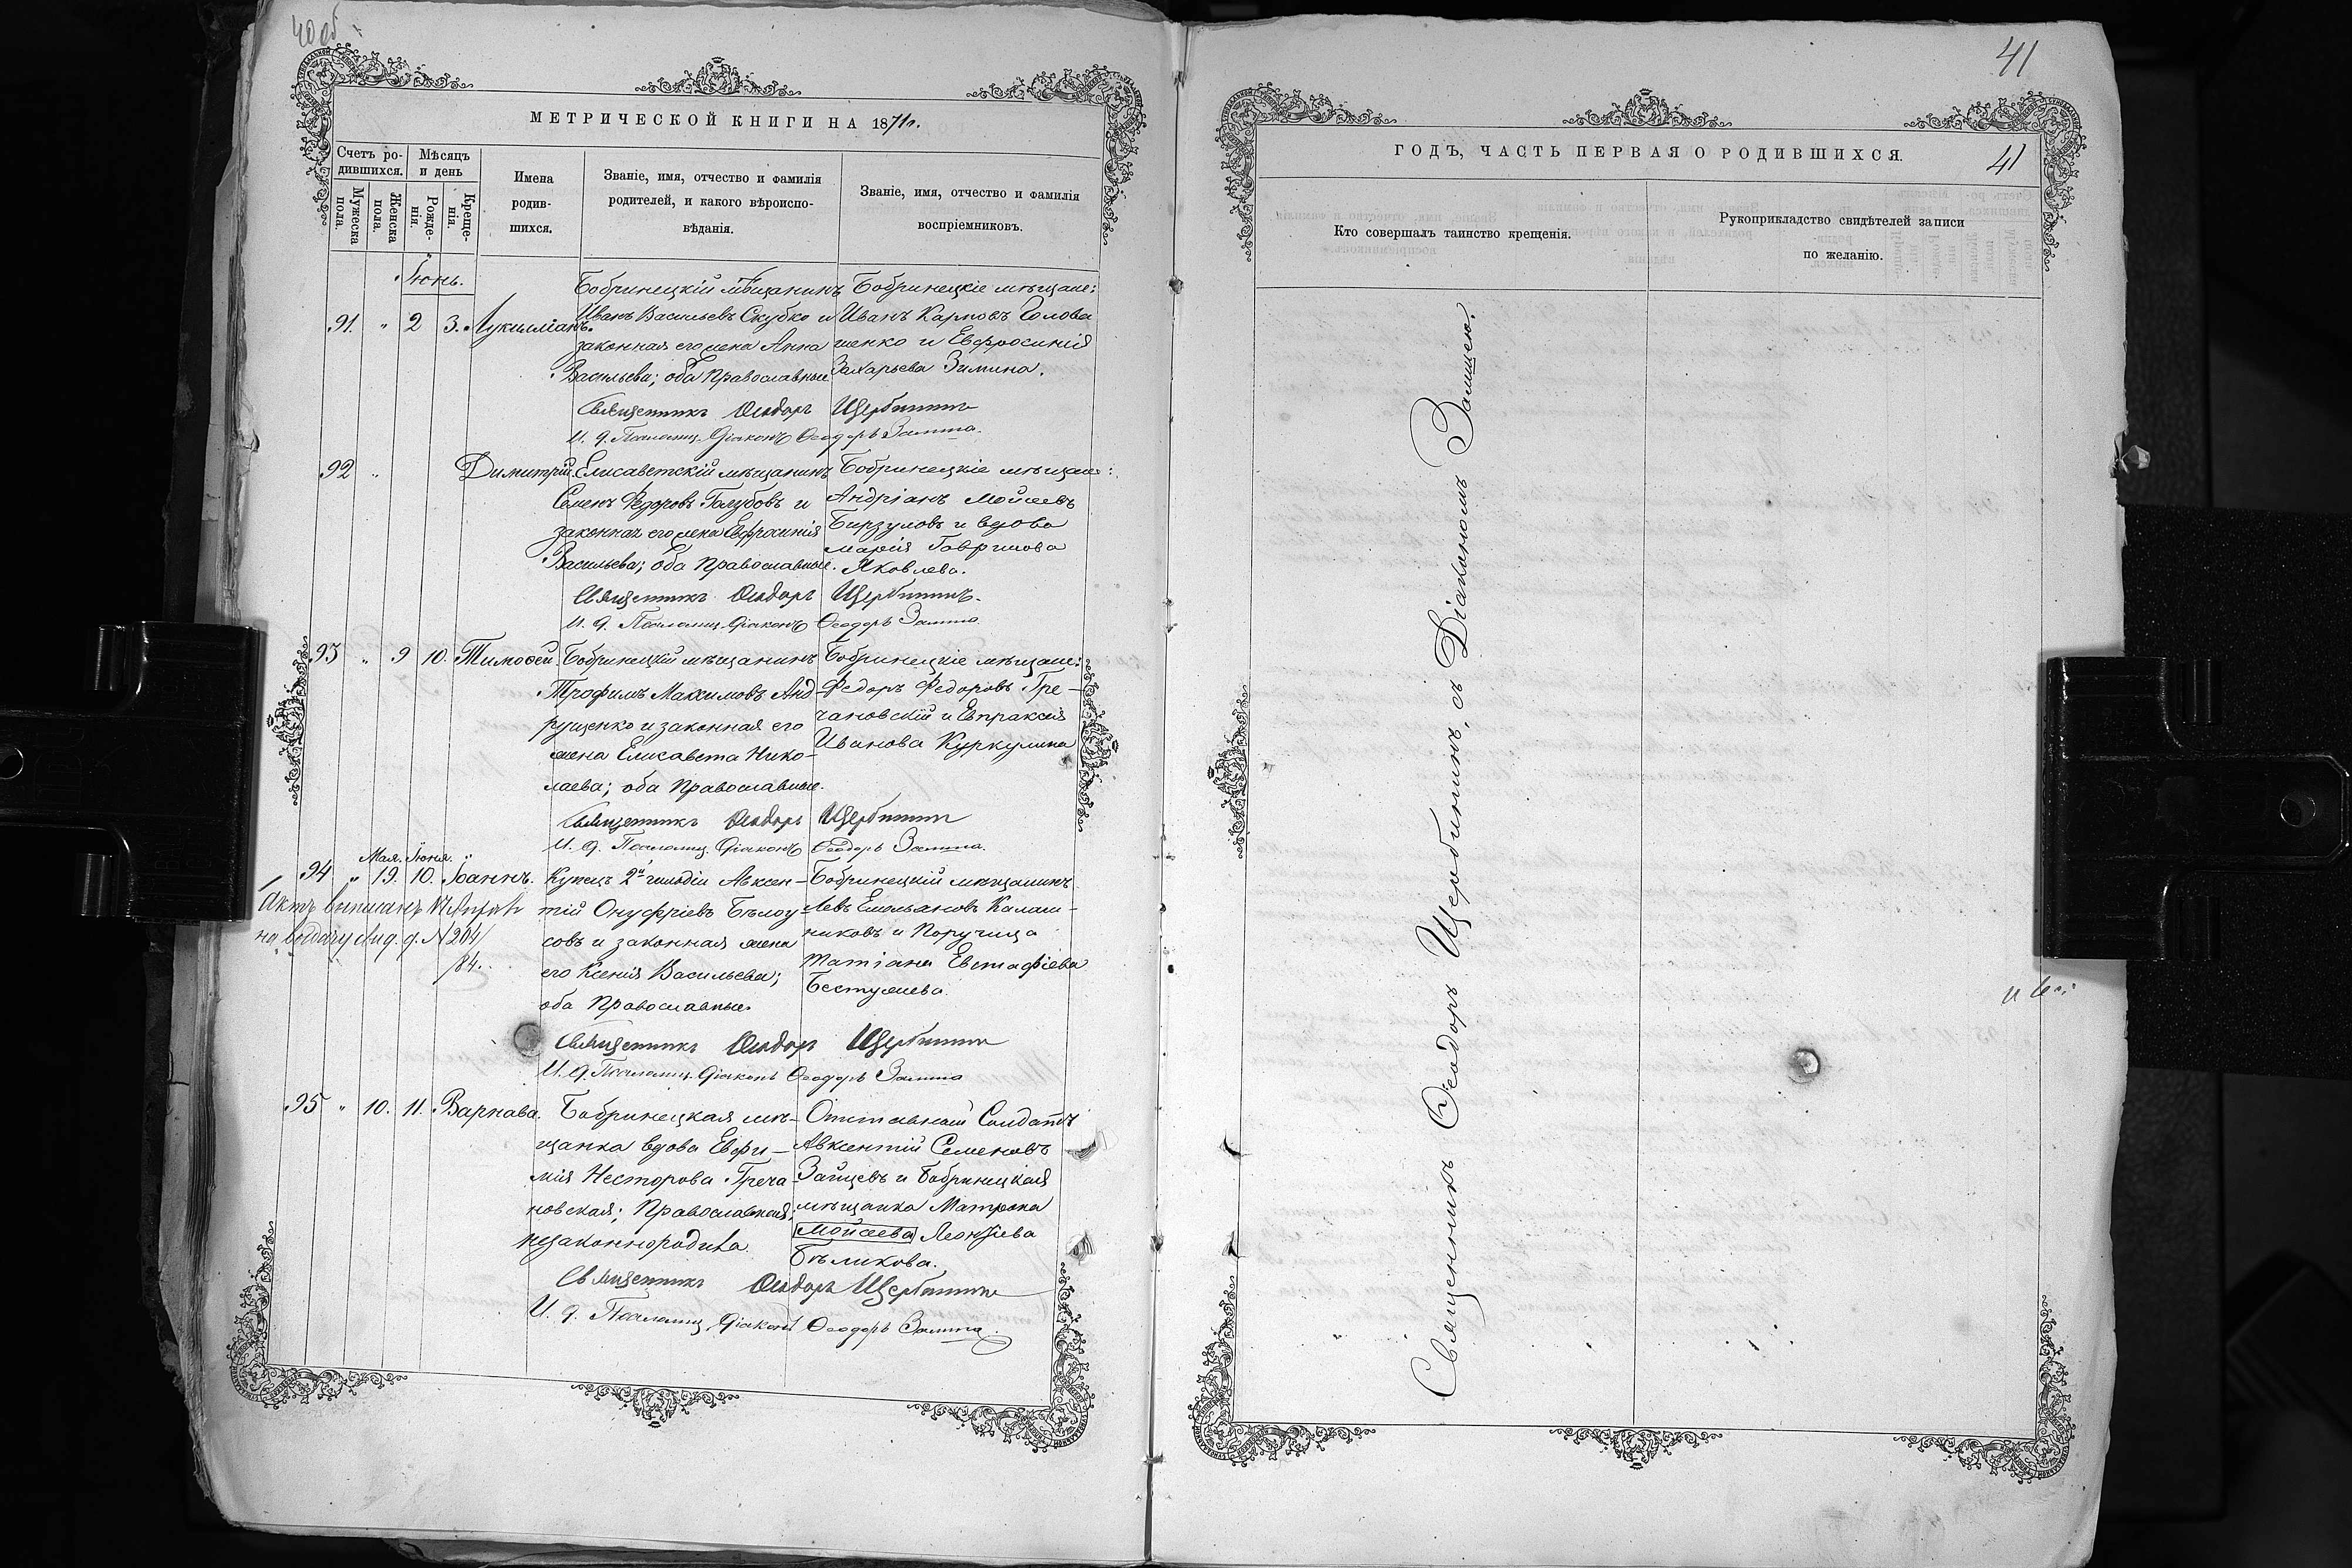 40 об
МЕТРИЧЕСКОЙ КНИГИ НА 1871 г.
Счетъ ро-
дившихся.
Мѣсяцъ
и день
Мужеска
пола.
Женска
пола.
Рожде-
нія.
Креще-
нія.
Имена
родив-
шихся.
Званіе, имя, отчество и фамилія
родителей, и какого вѣроиспо-
вѣданія.
Званіе, имя, отчество и фамилія
воспріемниковъ.
Іюнь.
91. " 2 3. Лукилліанъ.
Бобринецкій мѣщанинъ
Иванъ Васильевъ Скубко и
законная его жена Анна
Васильева; оба Православные
Бобринецкіе мѣщане:
Иванъ Карповъ Голова
шенко и Евфросинія
Захарьева Зимина.
Священникъ Ѳеодоръ Щербининъ
И. д. Псаломщ. Діаконъ Ѳеодоръ
92 " Димитрій.
Елисаветскій мѣщанинъ
Семенъ Ѳедоровъ Голубовъ и
законная его жена Евфросинія
Васильева; оба Православные.
Бобринецкіе мѣщане:
Андріанъ Мойсеевъ
Бирзуловъ и вдова
Марія Гаврилова
Яковлева.
Священникъ Ѳеодоръ Щербининъ.
И. д. Псаломщ. Діаконъ Ѳеодоръ
93 " 9 10. Тимоѳей.
Бобринецкій мѣщанинъ
Трофимъ Максимовъ Анд-
рущенко и законная его
жена Елисавета Нико-
лаева; оба Православные.
Бобринецкіе мѣщане:
Федоръ Федоровъ Гре-
чановскій и Евпраксія
Иванова Куркулина
Священникъ Ѳеодоръ Щербининъ
И. д. Псаломщ. Діаконъ Ѳеодоръ
Мая. Іюня.
94 " 19. 10. Іоаннъ.
Актъ выписанъ
на выдачу № 204/
84.
Купецъ 2й гильдіи Авксен-
тій Онуфріевъ Бѣлоу
совъ и законная жена
его Ксенія Васильева;
оба Православные
Бобринецкій мѣщанинъ
Левъ Емельяновъ Калаш-
никовъ и Поручица
Татіана Евстафіева
Бестужева.
Священникъ Ѳеодоръ Щербининъ
И. д. Псаломщ. Діаконъ Ѳеодоръ
95 " 10. 11. Варнава.
Бобринецкая мѣ-
щанка вдова Евфи-
мія Несторова Греча
новская; Православная;
незаконнородила.
Отставной Солдатъ
Авксентій Семеновъ
Зайцевъ и Бобринецкая
мѣщанка Матрона
Мойсеева Леонтіева
Бѣликова.
Священникъ Ѳеодоръ Щербининъ
И. д. Псаломщ. Діаконъ Ѳеодоръ
41
ГОДЪ, ЧАСТЬ ПЕРВАЯ О РОДИВШИХСЯ.
41
Кто совершалъ таинство крещенія.
Рукоприкладство свидѣтелей записи
по желанію.
Священникъ Ѳеодоръ Щербининъ, съ Діакономъ